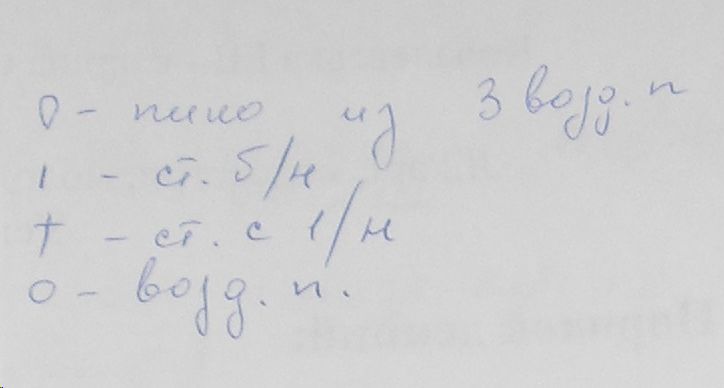 0 - пико из 3 возд. п
1 - ст. б/н
† - ст. с 1/н
о - возд. п.